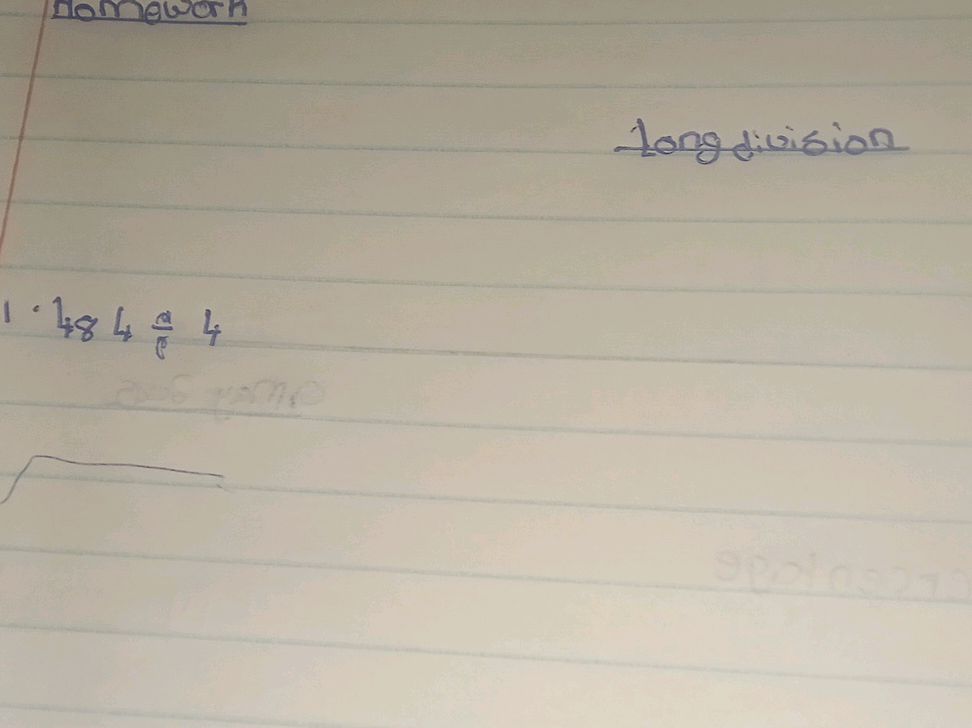 Homework
long division
1. 484 ÷ 4